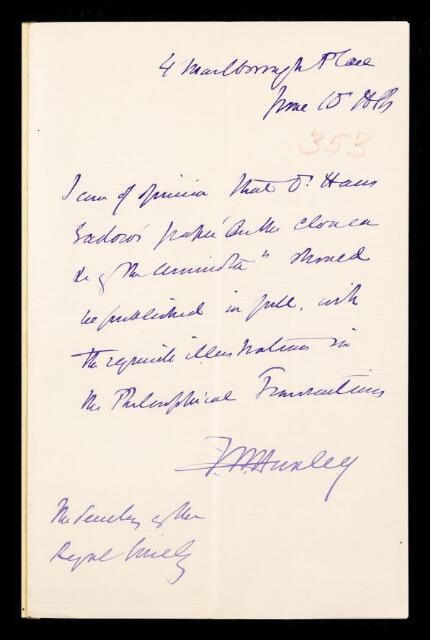 4 Marlborough Place
June 15
353
I am of opinion that Dr Hans
Gadow's paper "On the cloaca
&c of the Amniota" should
be published in full, with
the requisite illustrations in
the Philosophical Transactions
T. H. Huxley
The Secretary of the
Royal Society